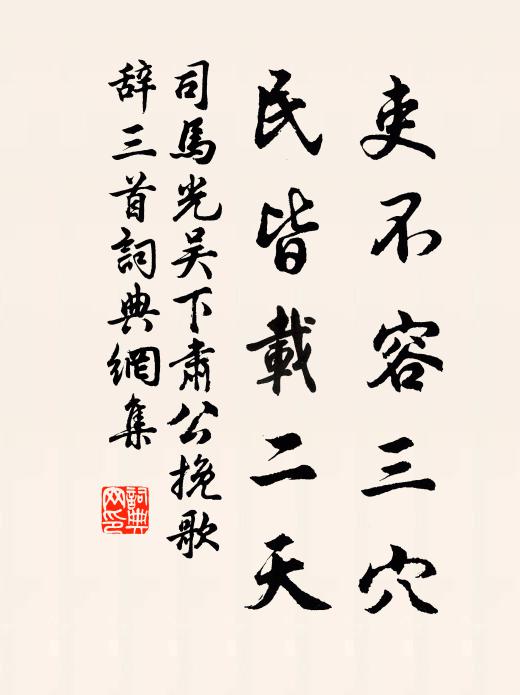 吏不容三穴
民皆載二天
司馬光吴下肅公挽歌
辞三首詞典網集
詞典
网印